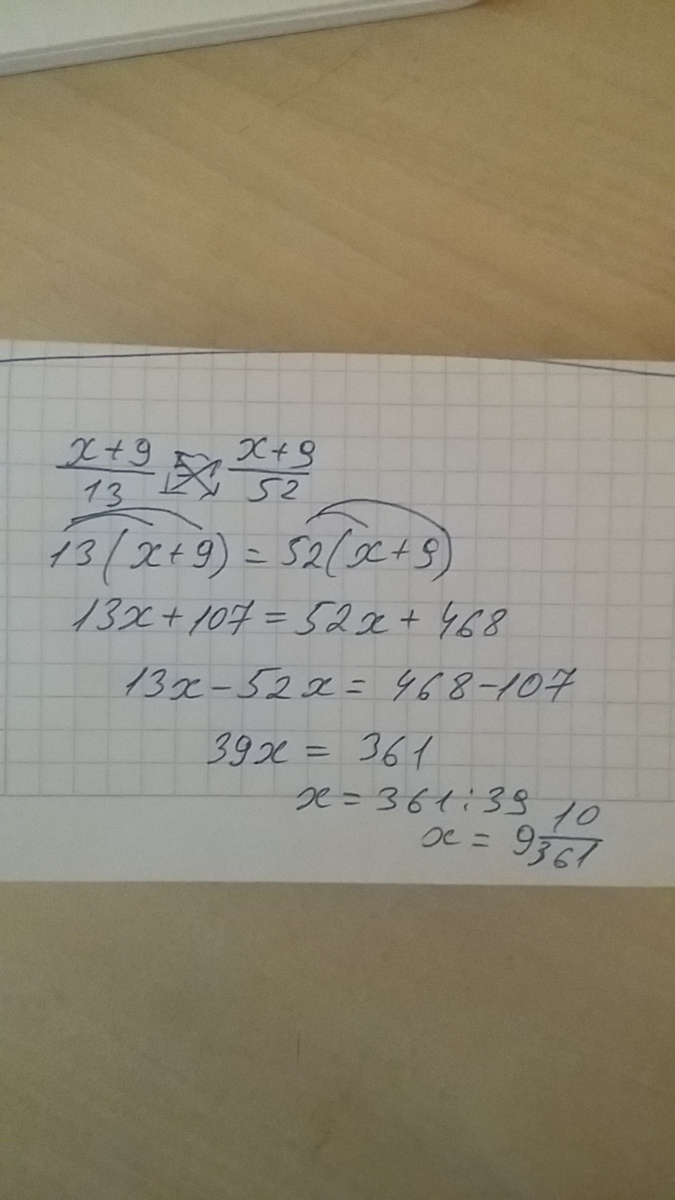 x+9/13 x+9/52
13(x+9)=52(x+9)
13x+107=52x+468
13x-52x=468-107
39x=361
x=361:39
x=9 10/361